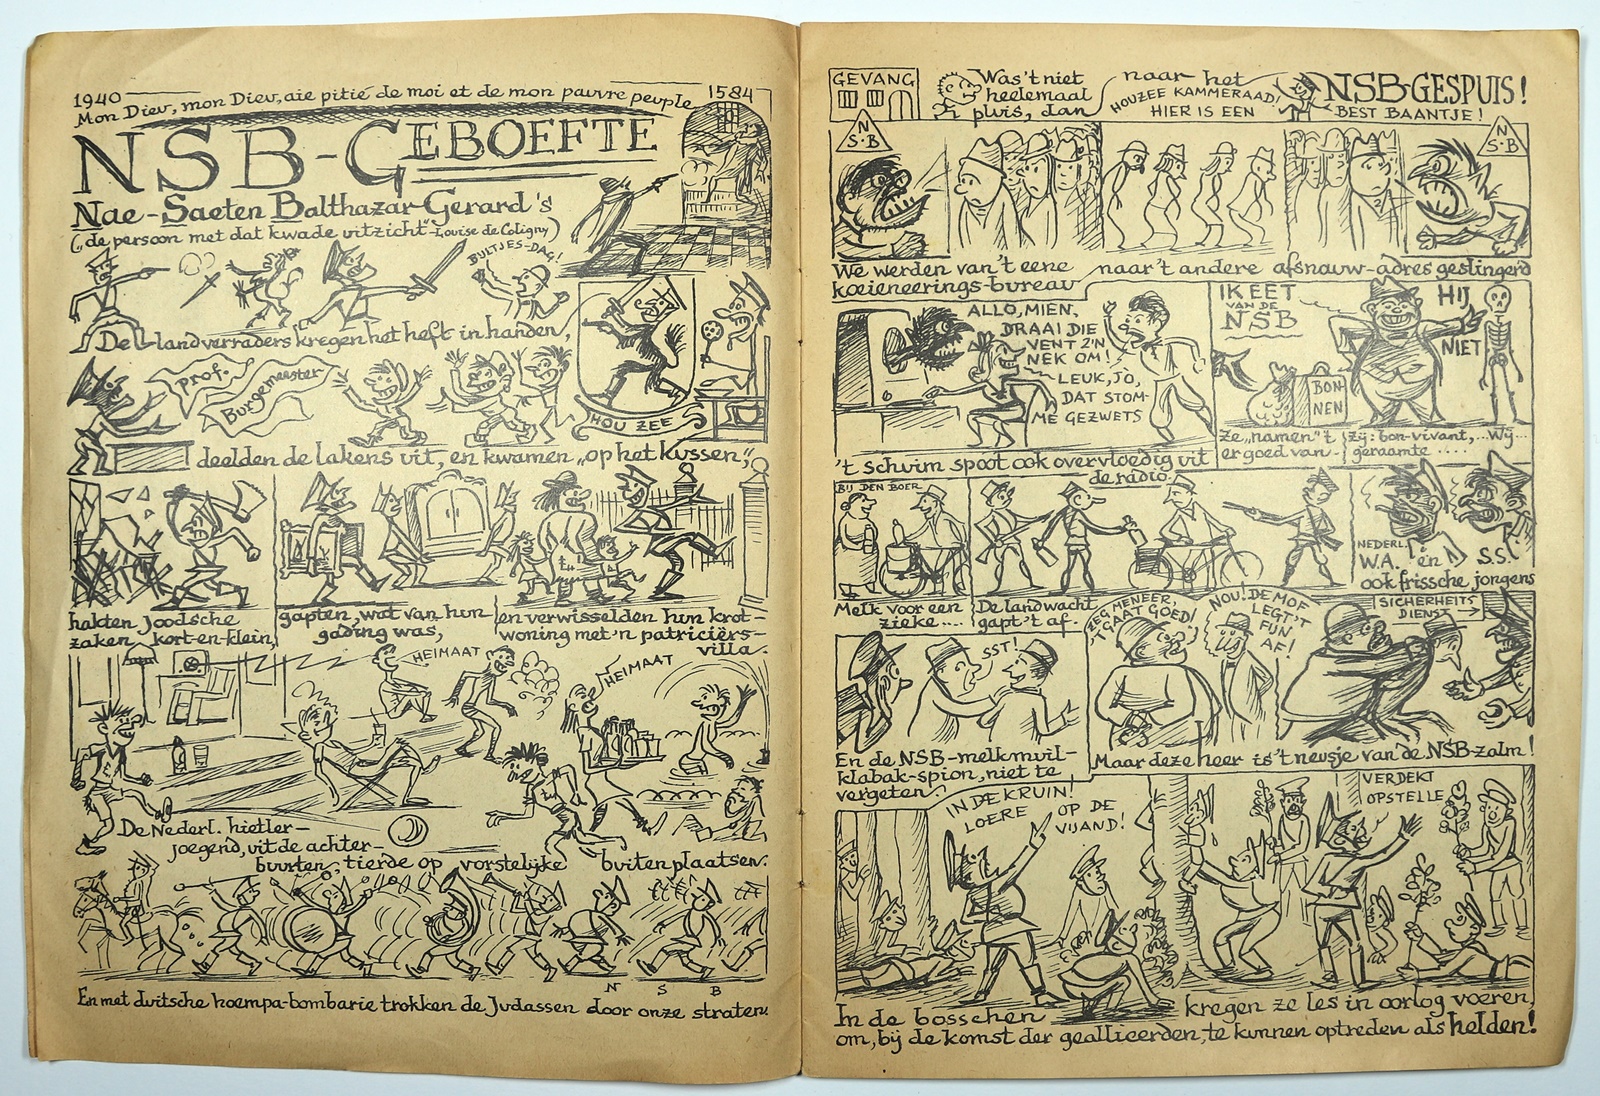 1940 1584
Mon Diev, mon Diev, aie pitié de moi et de mon pauvre peuple
NSB-GEBOEFTE
Nae-Saeten Balthazar-Gerard's
("de persoon met dat kwade uitzicht"-Louise de Coligny)
BULTJES-DAG!
De landverraders kregen het heft in handen,
prof.
Burgemeester
HOU ZEE
deelden de lakens uit, en kwamen "op het kussen",
hakten Joodsche
zaken kort-en-klein,
gapten, wat van hun
gading was,
en verwisselden hun krot-
woning met 'n patriciërs-
villa.
HEIMAAT
HEIMAAT
De Nederl. hietler-
joegend, uit de achter-
buurten, tierde op vorstelijke buitenplaatsen.
N S B
En met duitsche hoempa-bombarie trokken de Judassen door onze straten.
GEVANG
Was 't niet
heelemaal
pluis, dan
naar het
HOUZEE KAMMERAAD!
HIER IS EEN
NSB-GESPUIS!
BEST BAANTJE!
N
S·B
N
S·B
We werden van 't eene
koeieneerings-bureau
naar 't andere afsnauw-adres geslingerd
ALLO, MIEN,
DRAAI DIE
VENT Z'N
NEK OM!
LEUK, JÒ,
DAT STOM-
ME GEZWETS
't schuim spoot ook overvloedig uit
de radio.
IK EET
VAN DE
NSB
HIJ
NIET
BON-
NEN
ze "namen" 't
er goed van-
zij: bon-vivant,...Wij...
geraamte....
BIJ DEN BOER
Melk voor een
zieke....
De landwacht
gapt 't af.
NEDERL.
W.A. èn S.S.
ook frissche jongens
SST!
En de NSB-melkmuil-
klabak-spion, niet te
vergeten.
ZEG MENEER,
'T GAAT GOED!
NOU! DE MOF
LEGT 'T
FIJN
AF!
SICHERHEITS
DIENST
Maar deze heer is 't neusje van de NSB-zalm!
IN DE KRUIN!
LOERE OP DE
VIJAND!
VERDEKT
OPSTELLE
In de bosschen kregen ze les in oorlog voeren,
om, bij de komst der geallieerden, te kunnen optreden als helden!